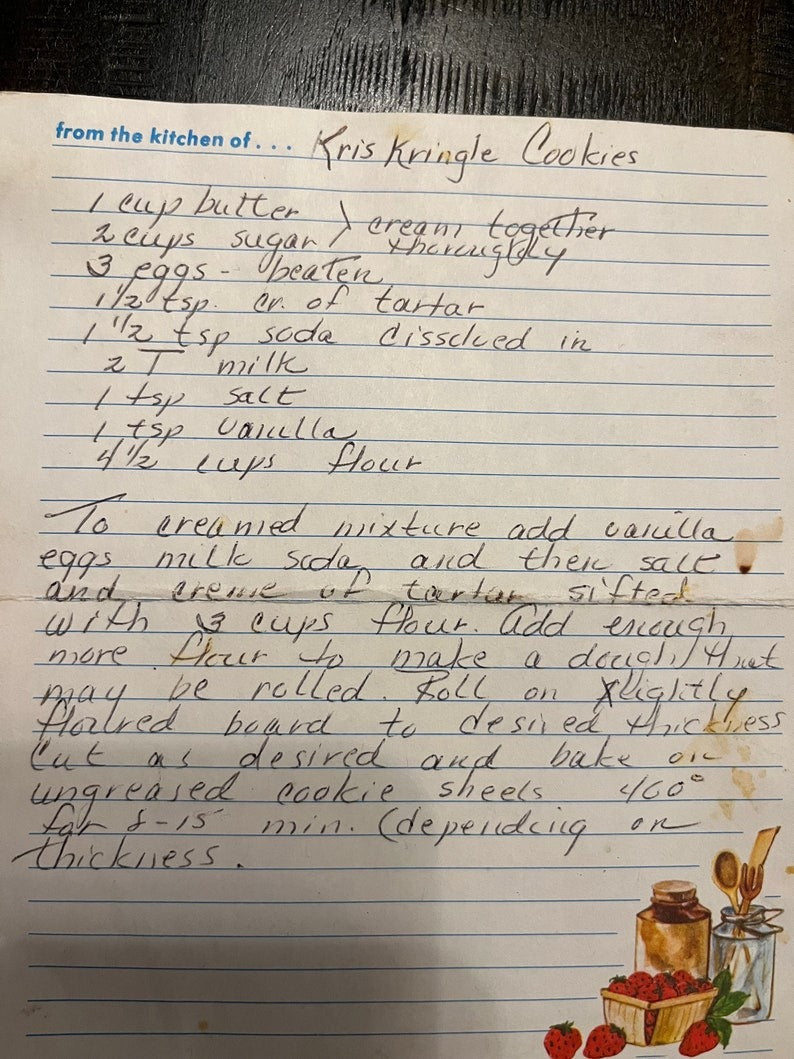 from the kitchen of... Kris Kringle Cookies
1 cup butter
2 cups sugar } cream together thoroughly
3 eggs - beaten
1 1/2 tsp. cr. of tartar
1 1/2 tsp soda dissolved in
2 T milk
1 tsp salt
1 tsp vanilla
4 1/2 cups flour
To creamed mixture add vanilla
eggs milk soda and then salt
and creme of tartar sifted
with 3 cups flour. Add enough
more flour to make a dough that
may be rolled. Roll on lightly
floured board to desired thickness
Cut as desired and bake on
ungreased cookie sheets 400°
for 8-15 min. (depending on
thickness.